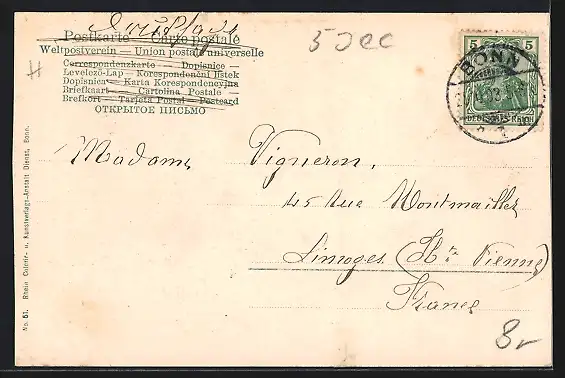 Postkarte — Carte postale
Weltpostverein — Union postale universelle
Correspondenzkarte — Dopisnice —
Levelező-Lap — Korespondenční lístek
Dopisnica — Karta Korespondencyjna
Briefkaart — Cartolina Postale
Brefkort — Tarjeta Postal — Postcard
ОТКРЫТОЕ ПИСЬМО
5 Dec
5 5
BONN
DEUTSCHES REICH
Madame Vigneron,
45 Rue Montmailler
Limoges (Hte Vienne)
France
8,-
No. 51. Rhein Colorir- u. Kunstverlags-Anstalt Dienst, Bonn.